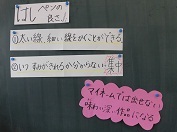 はしペンの
良さ!
①太い線、細い線をかくことができる
②いつすみがきれるか分からない→集中
マイネームでは出せない
味わい深い作品になる